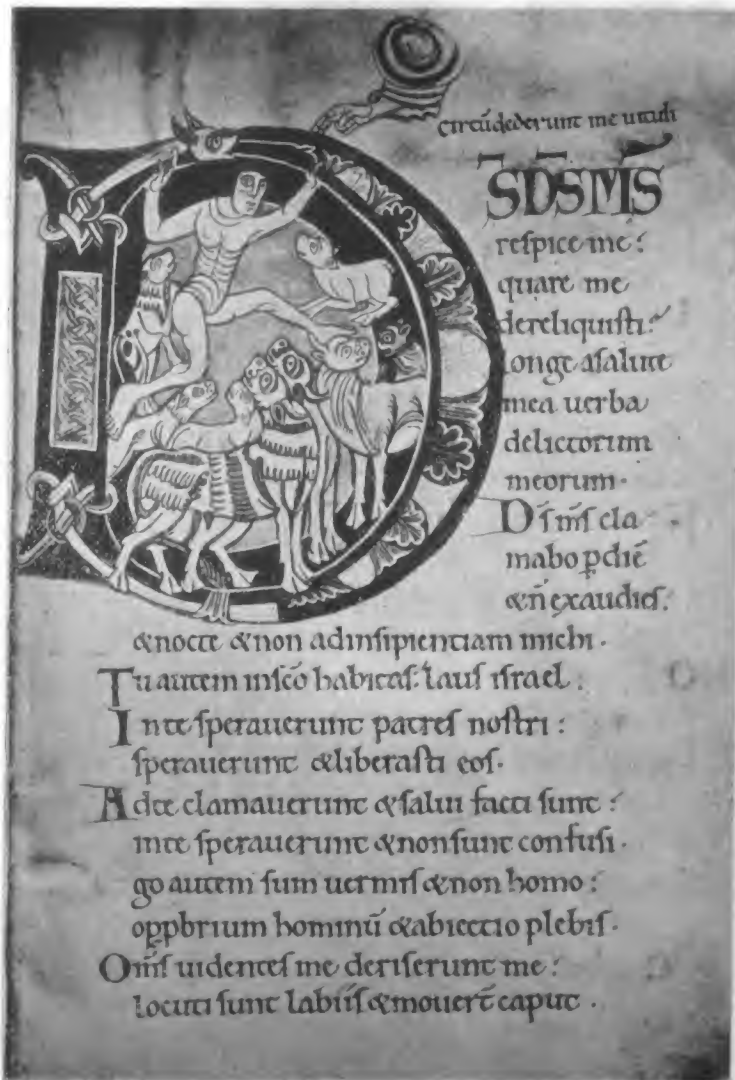 Circūdederunt me uituli
S̄D̄SM̄S
respice me:
quare me
dereliquisti:
longe asalute
mea uerba
delictorum
meorum.
D̄s m̄s cla
mabo ꝑ diē
& n̄ exaudies:
& nocte & non adinsipientiam michi.
Tu autem insc̄o habitas: laus israel:
In te sperauerunt patres nostri:
sperauerunt & liberasti eos.
Ad te clamauerunt & salui facti sunt:
in te sperauerunt & non sunt confusi.
go autem sum uermis & non homo:
oꝓpbrium hominū & abiectio plebis.
Om̄s uidentes me deriserunt me:
locuti sunt labiis & mouer̄t caput.